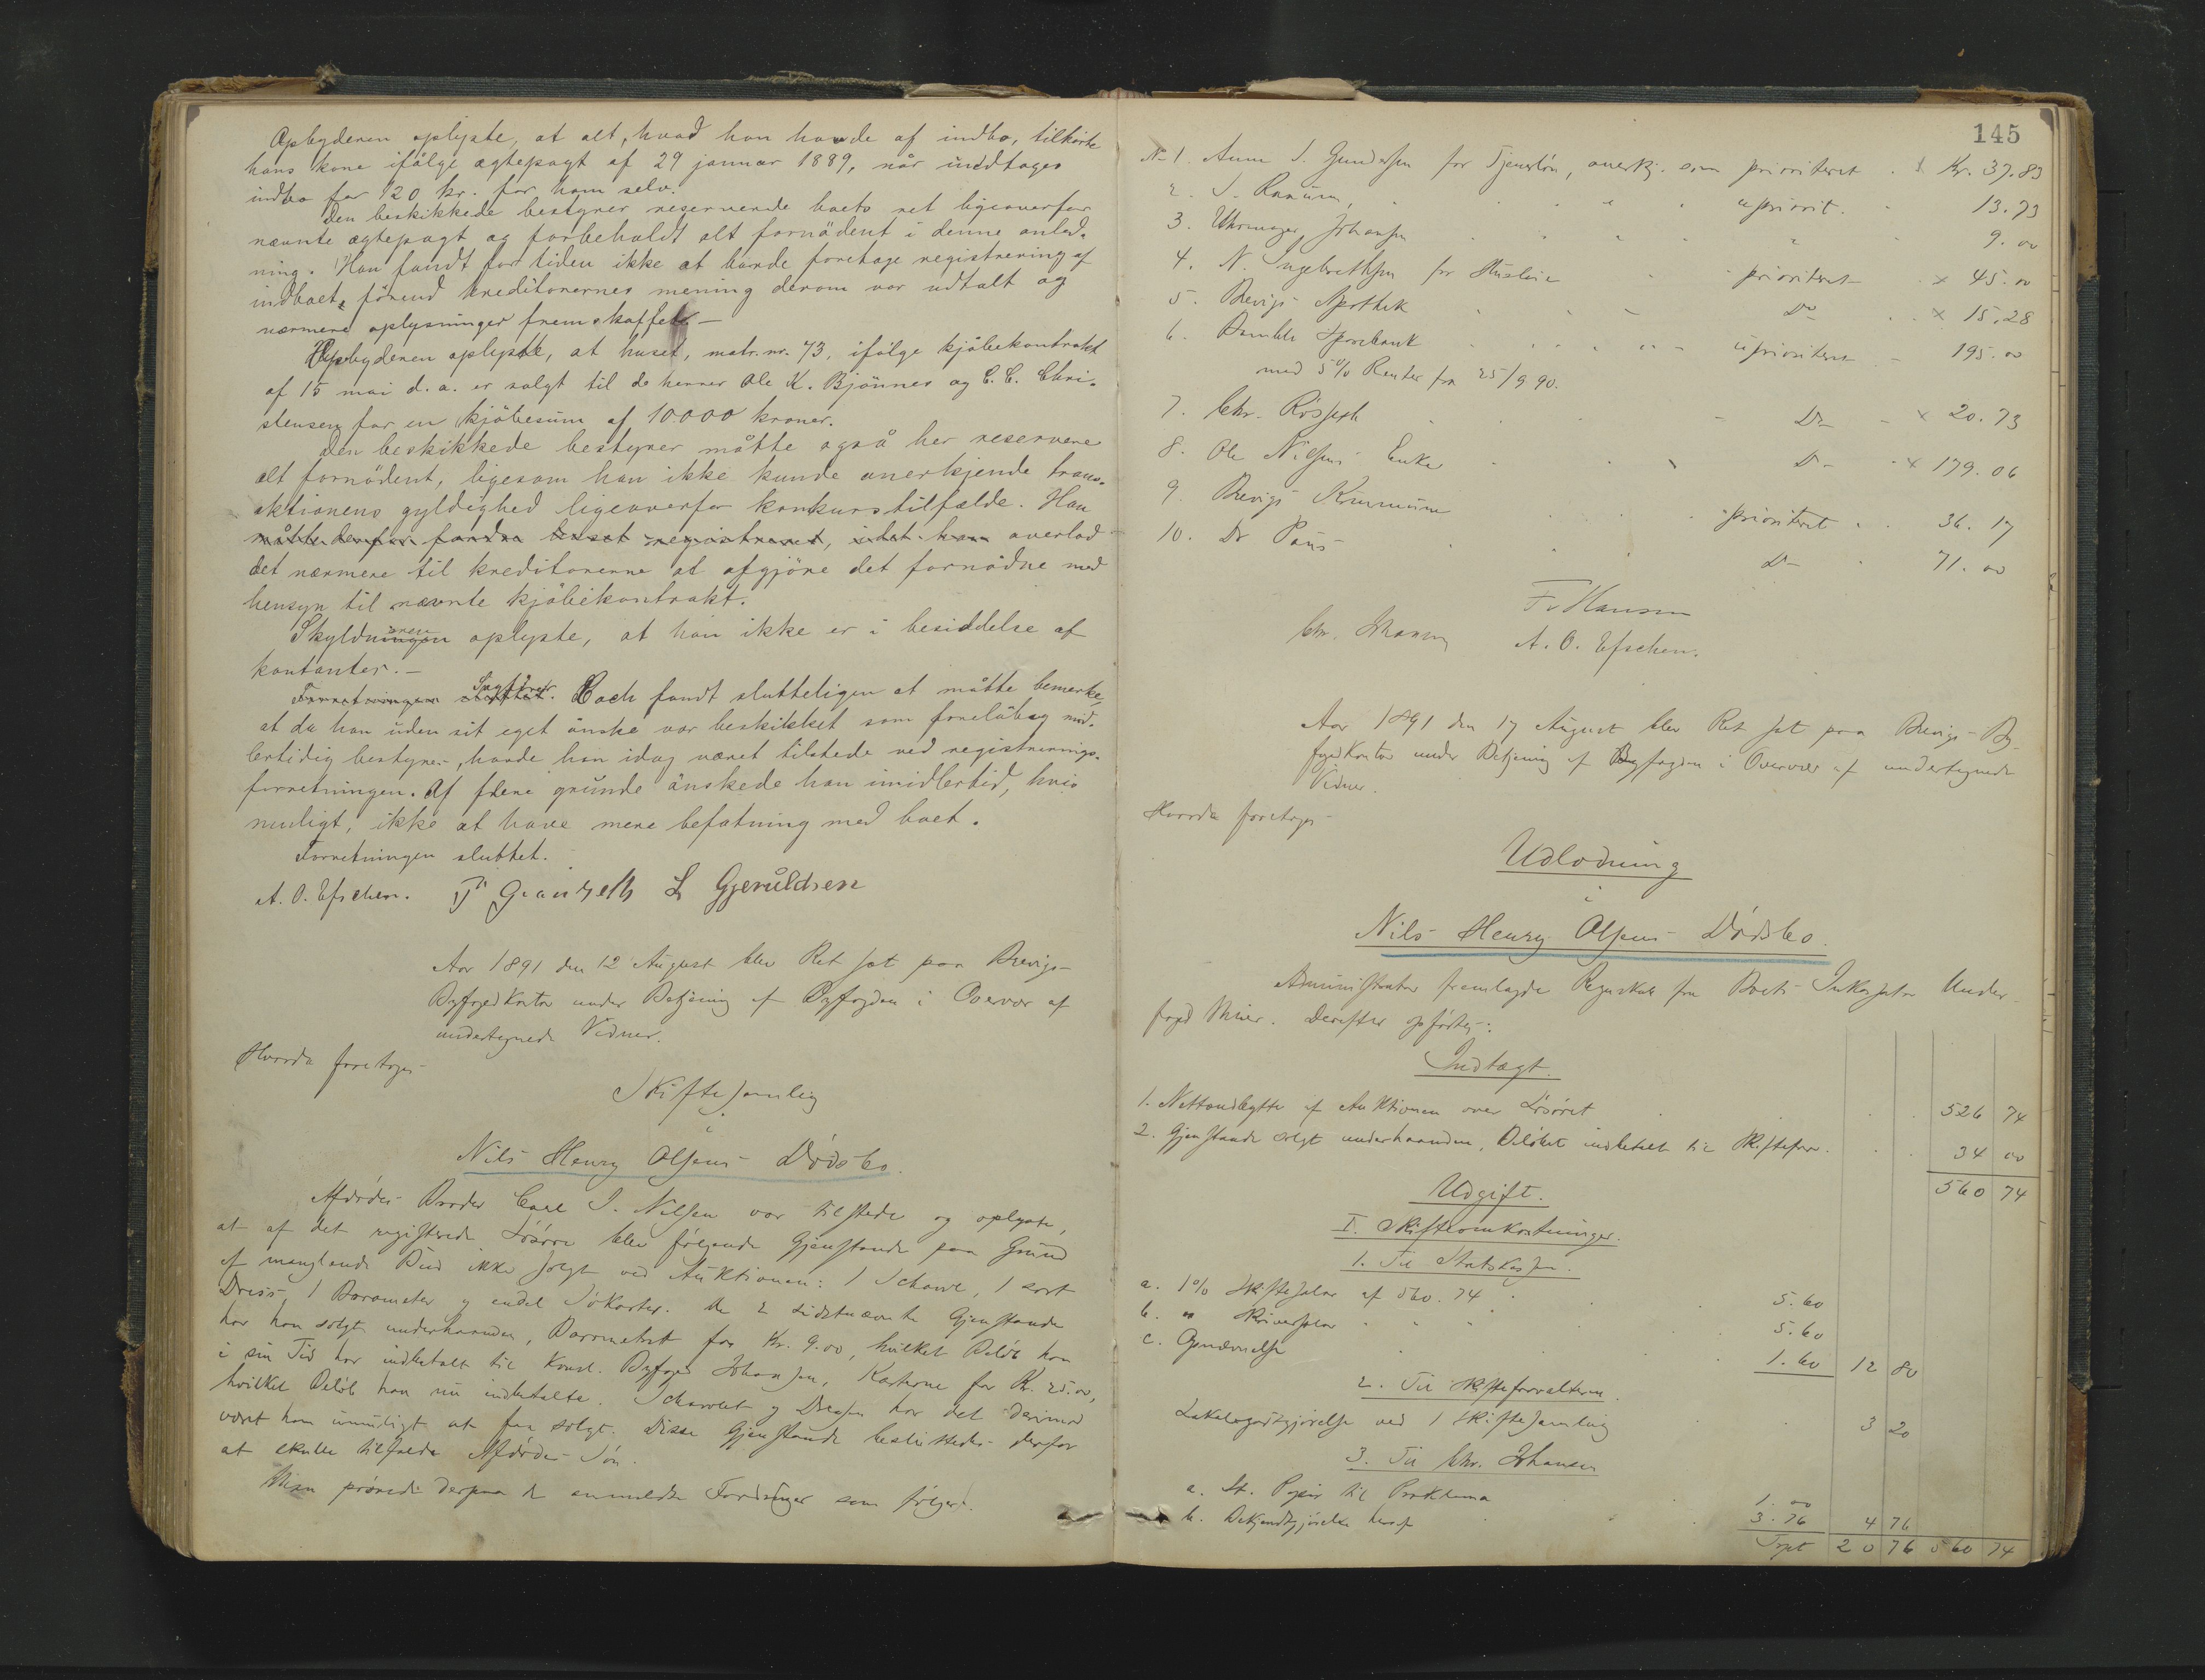 Opbyderen oplyste, at alt, hvad han havde af indbo, tilhørte
hans kone ifølge ægtepagt af 29 januar 1889, når undtages
indbo for 120 kr. for ham selv.
Den beskikkede bestyrer reserverede boets ret ligeoverfor
nævnte ægtepagt og forbeholdt alt fornødent i denne anled-
ning. Han fandt for tiden ikke at burde foretage registrering af
indboet, førend kreditorernes mening derom var udtalt og
nærmere oplysninger fremskaffet. —
Opbyderen oplyste, at huset, matr. nr. 73, ifølge kjøbekontrakt
af 15 mai d. a. er solgt til de herrer Ole K. Bjønnes og C. C. Chri-
stensen for en kjøbesum af 10.000 kroner.
Den beskikkede bestyrer måtte også her reservere
alt fornødent, ligesom han ikke kunde anerkjende trans-
aktionens gyldighed ligeoverfor konkurstilfælde. Han
måtte derfor fordre huset registreret, idet han overlod
det nærmere til kreditorerne at afgjøre det fornødne med
hensyn til nævnte kjøbekontrakt.
Skyldneren oplyste, at han ikke er i besiddelse af
kontanter. —
Forretningen sluttet. Sagfører Coch fandt slutteligen at måtte bemerke,
at da han uden sit eget ønske var beskikket som foreløbig mid-
lertidig bestyrer, havde han idag været tilstede ved registrerings-
forretningen. Af flere grunde ønskede han imidlertid, hvis
muligt, ikke at have mere befatning med boet.
Forretningen sluttet.
A. O. Efschen. Granseth L Gjeruldsen
Aar 1891 den 12 August blev Ret sat paa Brevigs
Byfogedkontor under Betjening af Byfogden i Overvær af
undertegnede Vidner.
Hvorda foretoges
Skiftesamling
i
Nils Henry Olsens Dødsbo.
Afdødes Broder Carl J. Nilsen var tilstede og oplyste,
at af det registrerede Løsøre blev følgende Gjenstande paa Grund
af manglende Bud ikke solgt ved Auktionen: 1 Schawl, 1 sort
Dress, 1 Barometer og endel Søkarter. De 2 sidstnævnte Gjenstande
har han solgt underhaanden, Barometret for Kr. 9.00, hvilket Beløb han
i sin Tid har indbetalt til Konst. Byfoged Johansen, Karterne for Kr. 25.00,
hvilket Beløb han nu indbetalte. Schawlet og Dressen har det derimod
været ham umuligt at faa solgt. Disse Gjenstande besluttedes derfor
at skulle tilfalde Afdødes Søn.
Man prøvede derpaa de anmeldte Fordringer som følger:
145
No 1. Anne J. Gundersen for Tjenerløn, anerkj. som prioriteret . x Kr. 37.83
2. J. Ramum, " upriorit. 13.73
3. Uhrmager Johansen " 9.00
4. N. Ingebrethsen for Husleie prioriteret x 45.00
5. Brevigs Apothek Do x 15.28
6. Bamble Sparebank uprioriteret 195.00
med 5% Renter fra 25/9 90.
7. Chr. Do x 20.73
8. Ole Nilsens Enke Do x 179.06
9. Brevigs Kommune prioriteret 36.17
10. Dr Paus Do 71.00
F. Hansen
Chr. Johansen A. O. Efschen.
Aar 1891 den 17 August blev Ret sat paa Brevigs By-
fogedkontor under Betjening af Byfogden i Overvær af undertegnede
Vidner.
Hvorda foretoges
Udlodning
i
Nils Henry Olsens Dødsbo.
Administrator fremlagde Regnskab fra Boets Inkassator Under-
foged Meier. Derefter opførtes:
Indtægt.
1. Nettoudbytte af Auktionen over Løsøret 526 74
2. Gjenstande solgt underhaanden, Beløbet indbetalt til Skifteforv. 34 00
560 74
Udgift.
I. Skifteomkostninger.
1. Til Statskassen.
a. 1% Skiftesalar af 560.74 5.60
b. " Skriversalar 5.60
c. Opnævnelse 1.60 12 80
2. Til Skifteforvalteren.
Lokalegodtgjørelse ved 1 Skiftesamling 3 20
3. Til Chr. Johansen
a. St. Papir til Proklama 1.00
b. Bekjendtgjørelse heraf 3.76 4 76
Trpt 20 76 560 74